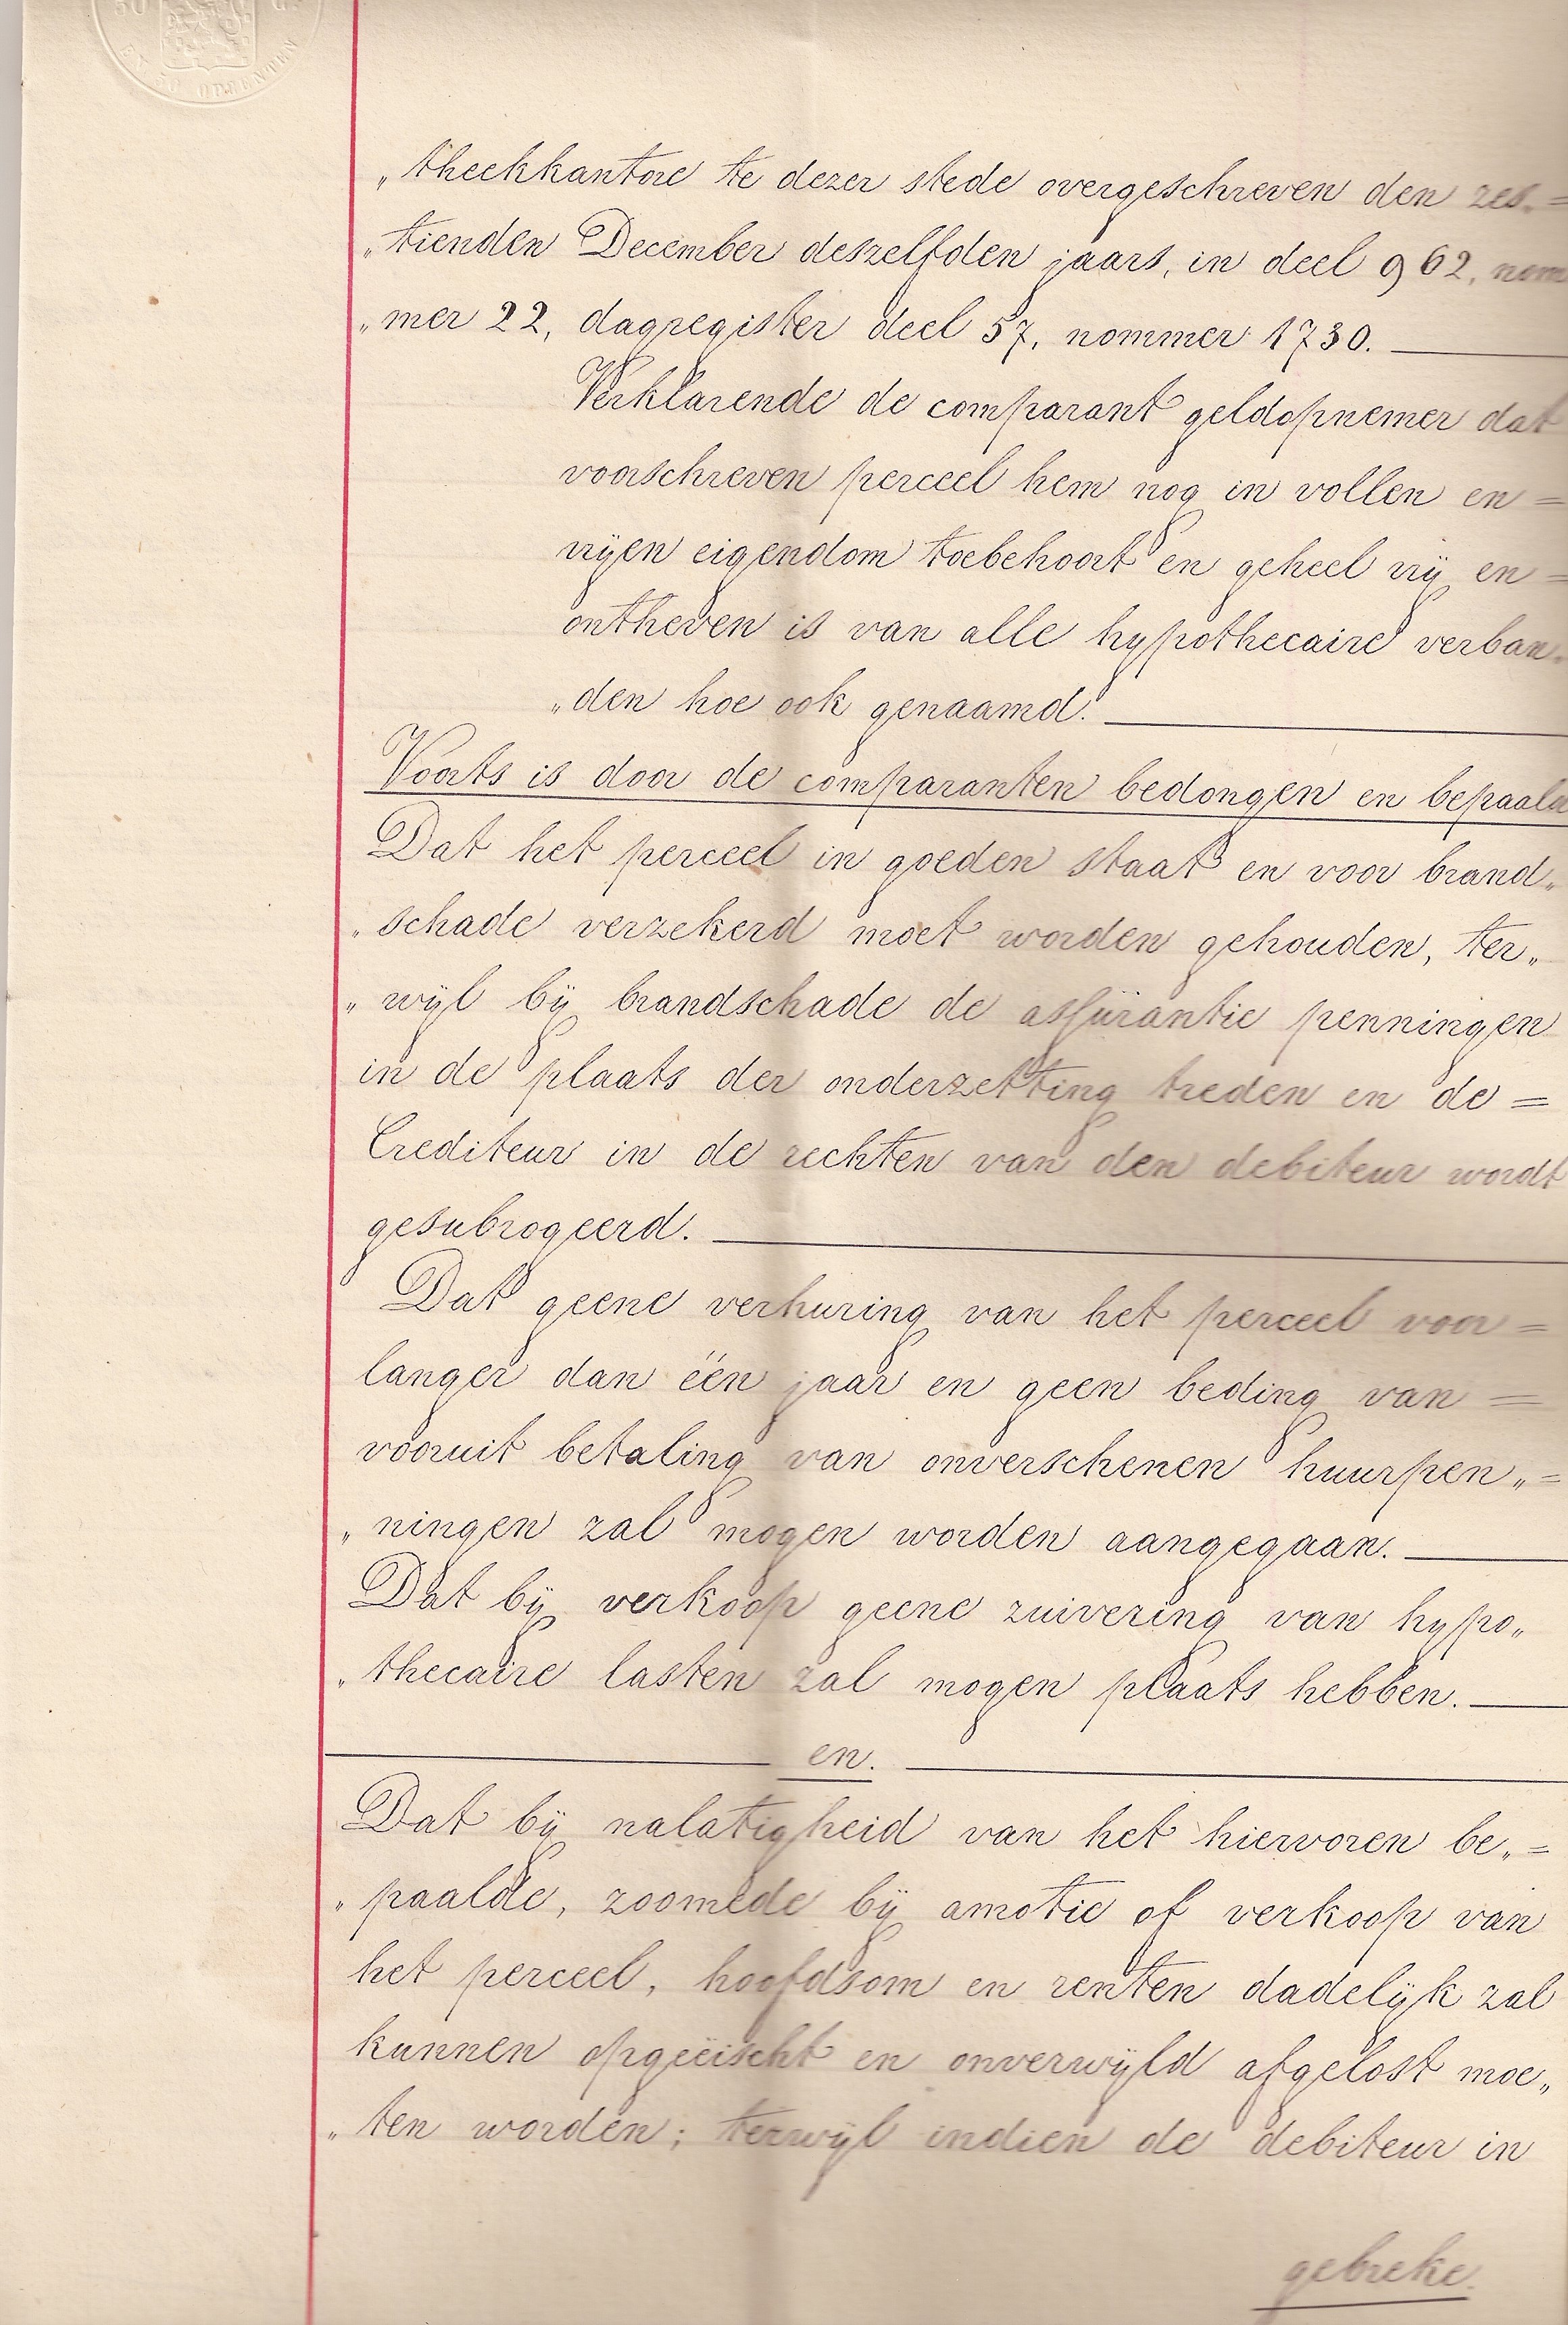 50 C.
EN 50 OPCENTEN
„theekkantore te dezer stede overgeschreven den zes„=
„tienden December deszelfden jaars, in deel 962, nom
„mer 22, dagregister deel 57, nommer 1730.
Verklarende de comparant geldopnemer dat
voorschreven perceel hem nog in vollen en =
vrijen eigendom toebehoort en geheel vrij en =
ontheven is van alle hypothecaire verban„
„den hoe ook genaamd.
Voorts is door de comparanten bedongen en bepaald
Dat het perceel in goeden staat en voor brand„
„schade verzekerd moet worden gehouden, ter„
„wijl bij brandschade de assurantie penningen
in de plaats der onderzetting treden en de =
Crediteur in de rechten van den debiteur wordt
gesubrogeerd.
Dat geene verhuring van het perceel voor =
langer dan één jaar en geen beding van =
vooruit betaling van onverschenen huurpen„=
„ningen zal mogen worden aangegaan.
Dat bij verkoop geene zuivering van hypo„
„thecaire lasten zal mogen plaats hebben.
en.
Dat bij nalatigheid van het hiervoren be„=
„paalde, zoomede bij amotie of verkoop van
het perceel, hoofdsom en renten dadelijk zal
kunnen opgeëischt en onverwijld afgelost moe„
„ten worden; terwijl indien de debiteur in
gebreke.